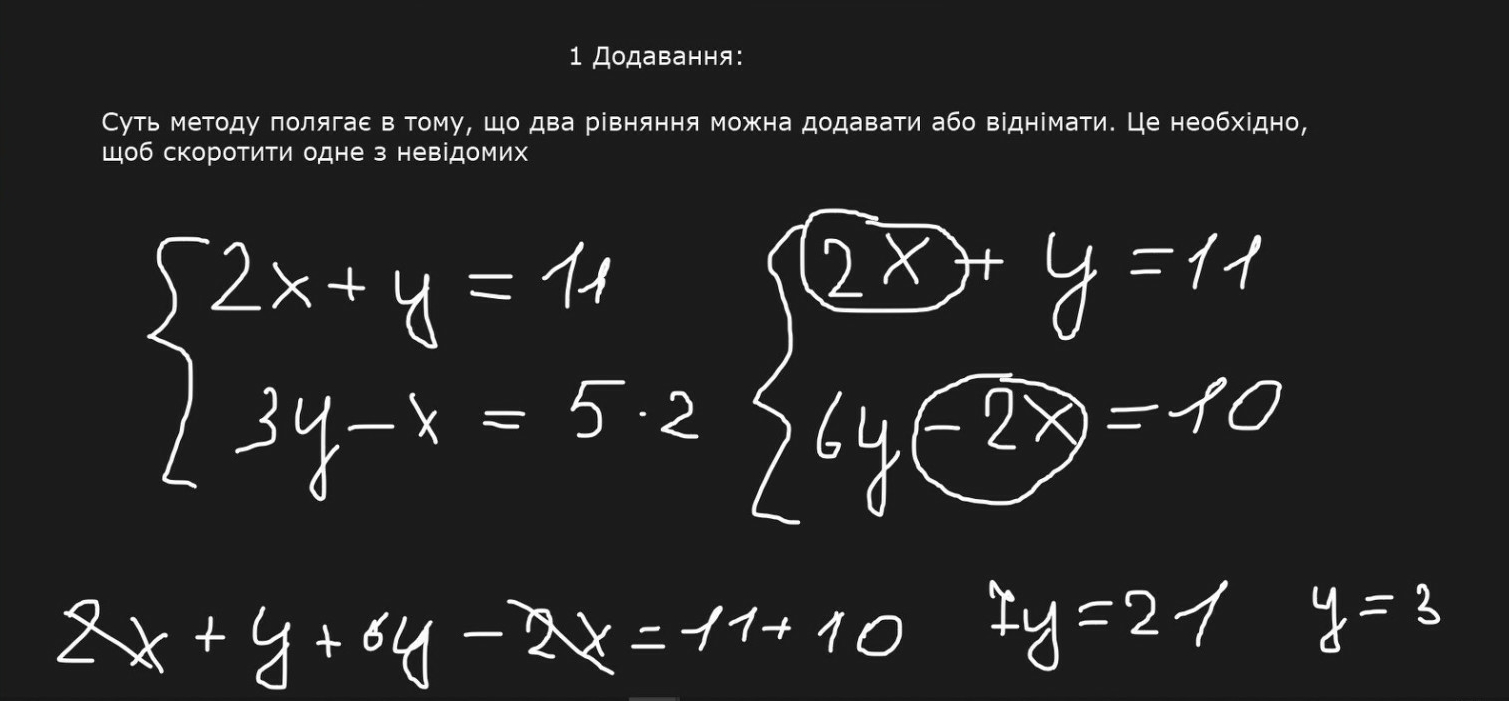 1 Додавання:
Суть методу полягає в тому, що два рівняння можна додавати або віднімати. Це необхідно,
щоб скоротити одне з невідомих
2x + y = 11
3y - x = 5 · 2
2x + y = 11
6y - 2x = 10
2x + y + 6y - 2x = 11 + 10 7y = 21 y = 3